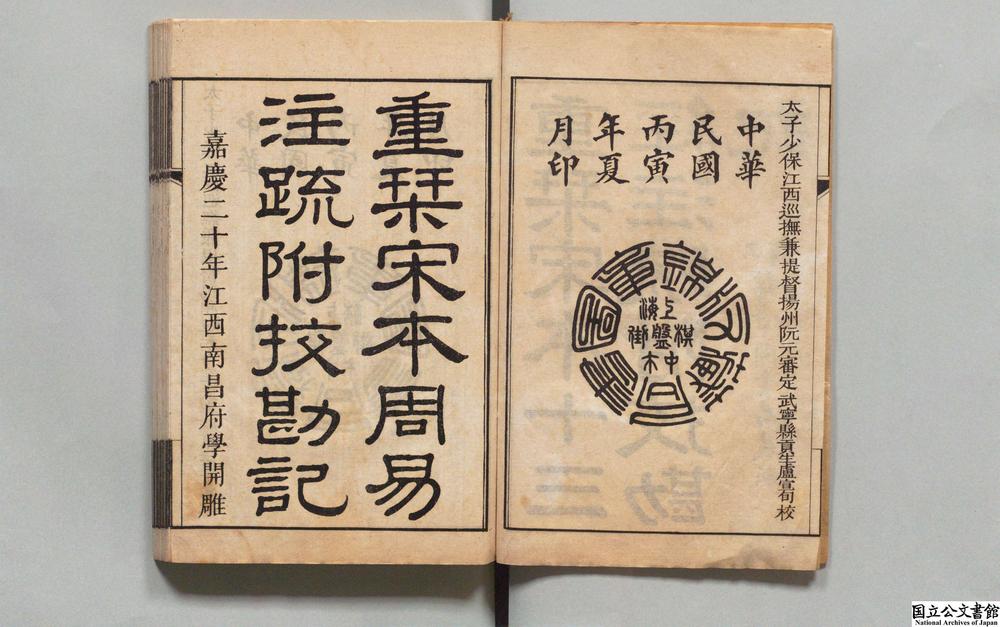 太子少保江西巡撫兼提督揚州阮元審定武寧縣貢生盧宣旬校
中華
民國
丙寅
年夏
月印
錦章圖書局藏版
上海棋盤街中市
重栞宋本周易
注疏附挍勘記
嘉慶二十年江西南昌府學開雕
国立公文書館
National Archives of Japan